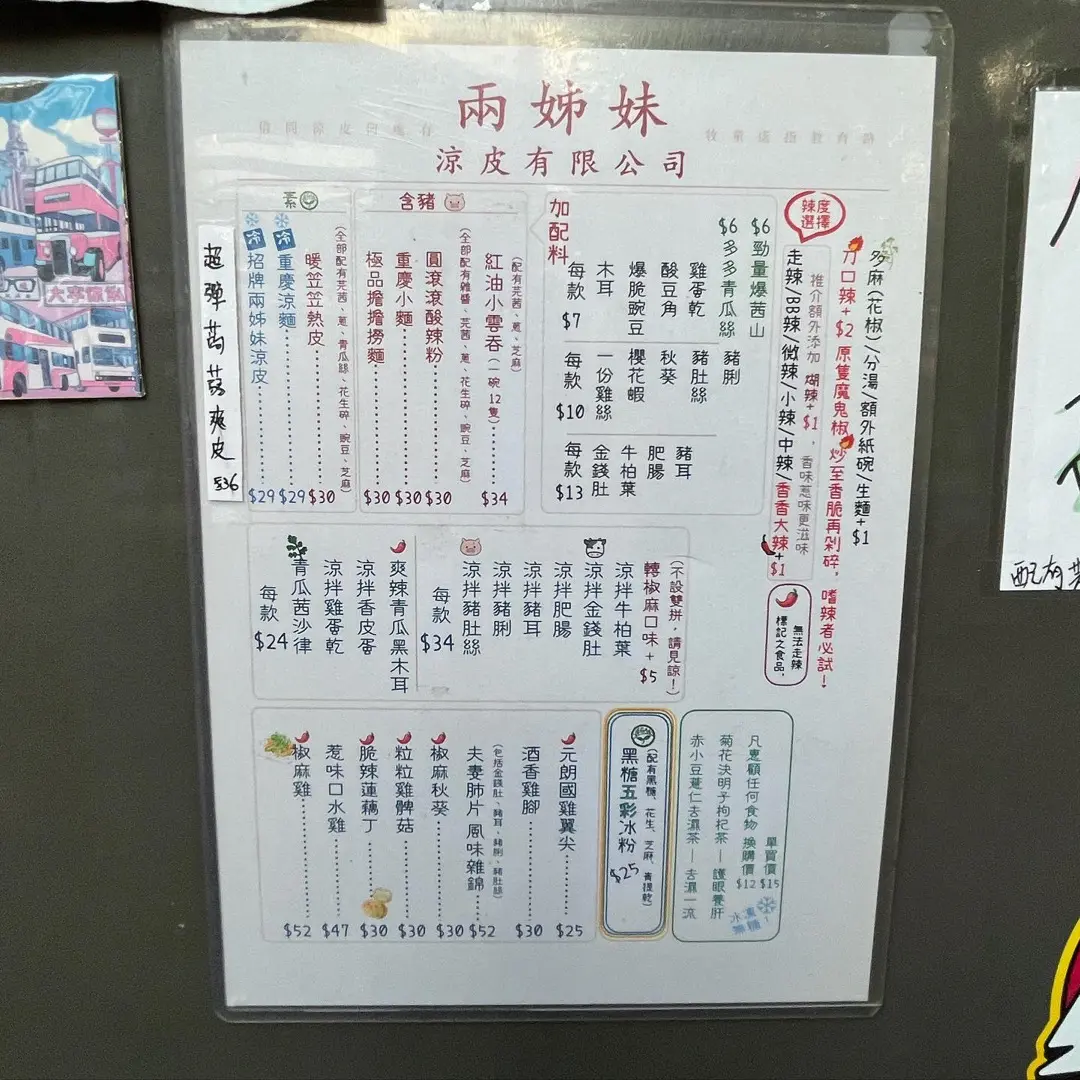 兩姊妹
涼皮有限公司
借問涼皮何處有
牧童遙指教育路
素
冷
招牌兩姊妹涼皮 $29
冷
重慶涼麵 $29
暖笠笠熱皮 $30
(全部配有芫茜、蔥、青瓜絲、花生碎、豌豆、芝麻)
超彈蒟蒻爽皮
$36
含豬
極品擔擔撈麵 $30
重慶小麵 $30
圓滾滾酸辣粉 $30
(全部配有雜醬、芫茜、蔥、花生碎、豌豆、芝麻)
紅油小雲吞(一碗12隻) $34
(配有芫茜、蔥、芝麻)
加配料
每款 $7
木耳
爆脆豌豆
酸豆角
雞蛋乾
$6 多多青瓜絲
$6 勁量爆茜山
每款 $10
一份雞絲
櫻花蝦
秋葵
豬肚絲
豬脷
每款 $13
金錢肚
牛柏葉
肥腸
豬耳
辣度選擇
走辣/BB辣/微辣/小辣/中辣/香香大辣+$1
推介額外添加 煳辣+$1，香味惹味更滋味
冇口辣+$2 原隻魔鬼椒 炒至香脆再剁碎，嗜辣者必試！
多麻(花椒)/分湯/額外紙碗/生麵+$1
標記之食品，
無法走辣
每款 $24
青瓜茜沙律
涼拌雞蛋乾
涼拌香皮蛋
爽辣青瓜黑木耳
每款 $34
涼拌豬肚絲
涼拌豬脷
涼拌豬耳
涼拌肥腸
涼拌金錢肚
涼拌牛柏葉
轉椒麻口味+$5
(不設雙拼，請見諒！)
椒麻雞 $52
惹味口水雞 $47
脆辣蓮藕丁 $30
粒粒雞髀菇 $30
椒麻秋葵 $30
夫妻肺片 風味雜錦 $52
(包括金錢肚、豬耳、豬脷、豬肚絲)
酒香雞腳 $30
元朗國雞翼尖 $25
黑糖五彩冰粉 $25
(配有黑糖、花生、芝麻、青提乾)
赤小豆薏仁去濕茶 — 去濕一流
菊花決明子枸杞茶 — 護眼養肝
凡惠顧任何食物 換購價 $12
單買價 $15
冰凍
無糖！
配有